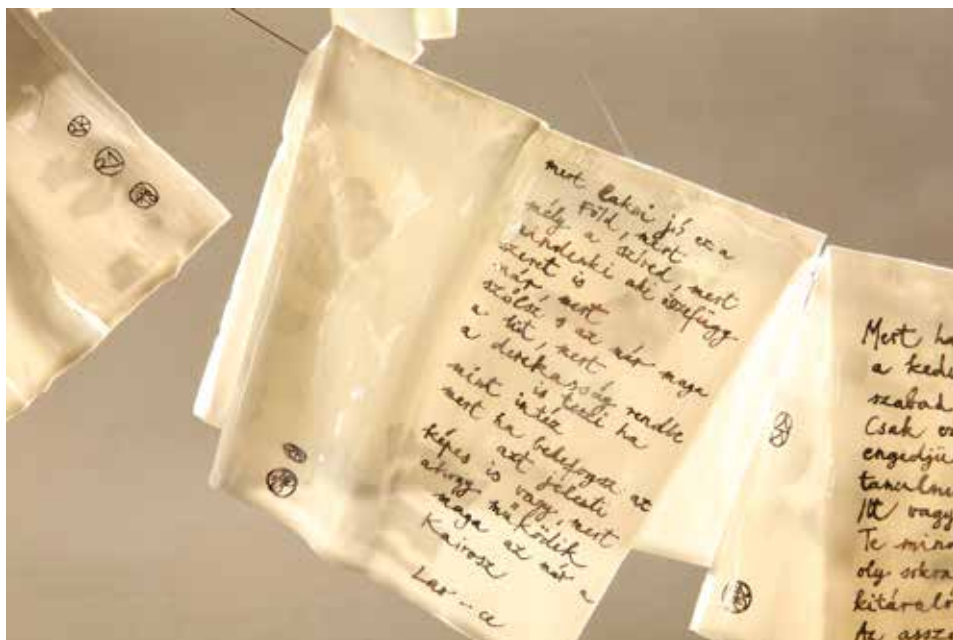 27
mert lakni jó ez a
Föld, mert
mély a szived, mert
mindenki aki összefügg
szeret is
már, mert
szólsz s az már maga
a tört, mert
a derekasság rendbe
is teszi ha
mert ha belefogsz az
azt jelenti
képes is vagy, mert
ahogy működik
maga az már a
Kairosz
Mert ha
a ked
szabad
Csak
engedjü
tanulni
Itt vagy
Te mind
oly sokra
kitáraló
Az assz